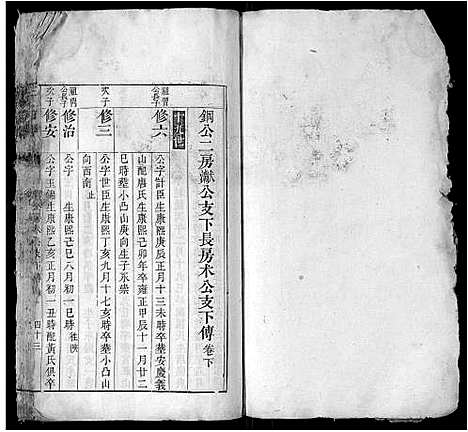 銅公二房獻公支下長房木公支下傳 卷下
十九世
公長子
修六
公字計臣生康熙庚辰正月十三未時卒葬安慶義
山配唐氏生康熙己卯年卒雍正甲辰十一月廿二
巳時葬小凸山庚向生子永崇
次子
修三
公字世臣生康熙丁亥九月十七亥時卒葬小凸山
向西南止
公長子
修治
公字 生康熙己巳八月初一巳時
次子
修安
公字玉 生康熙乙亥正月初一丑時配黃氏俱卒
四十三